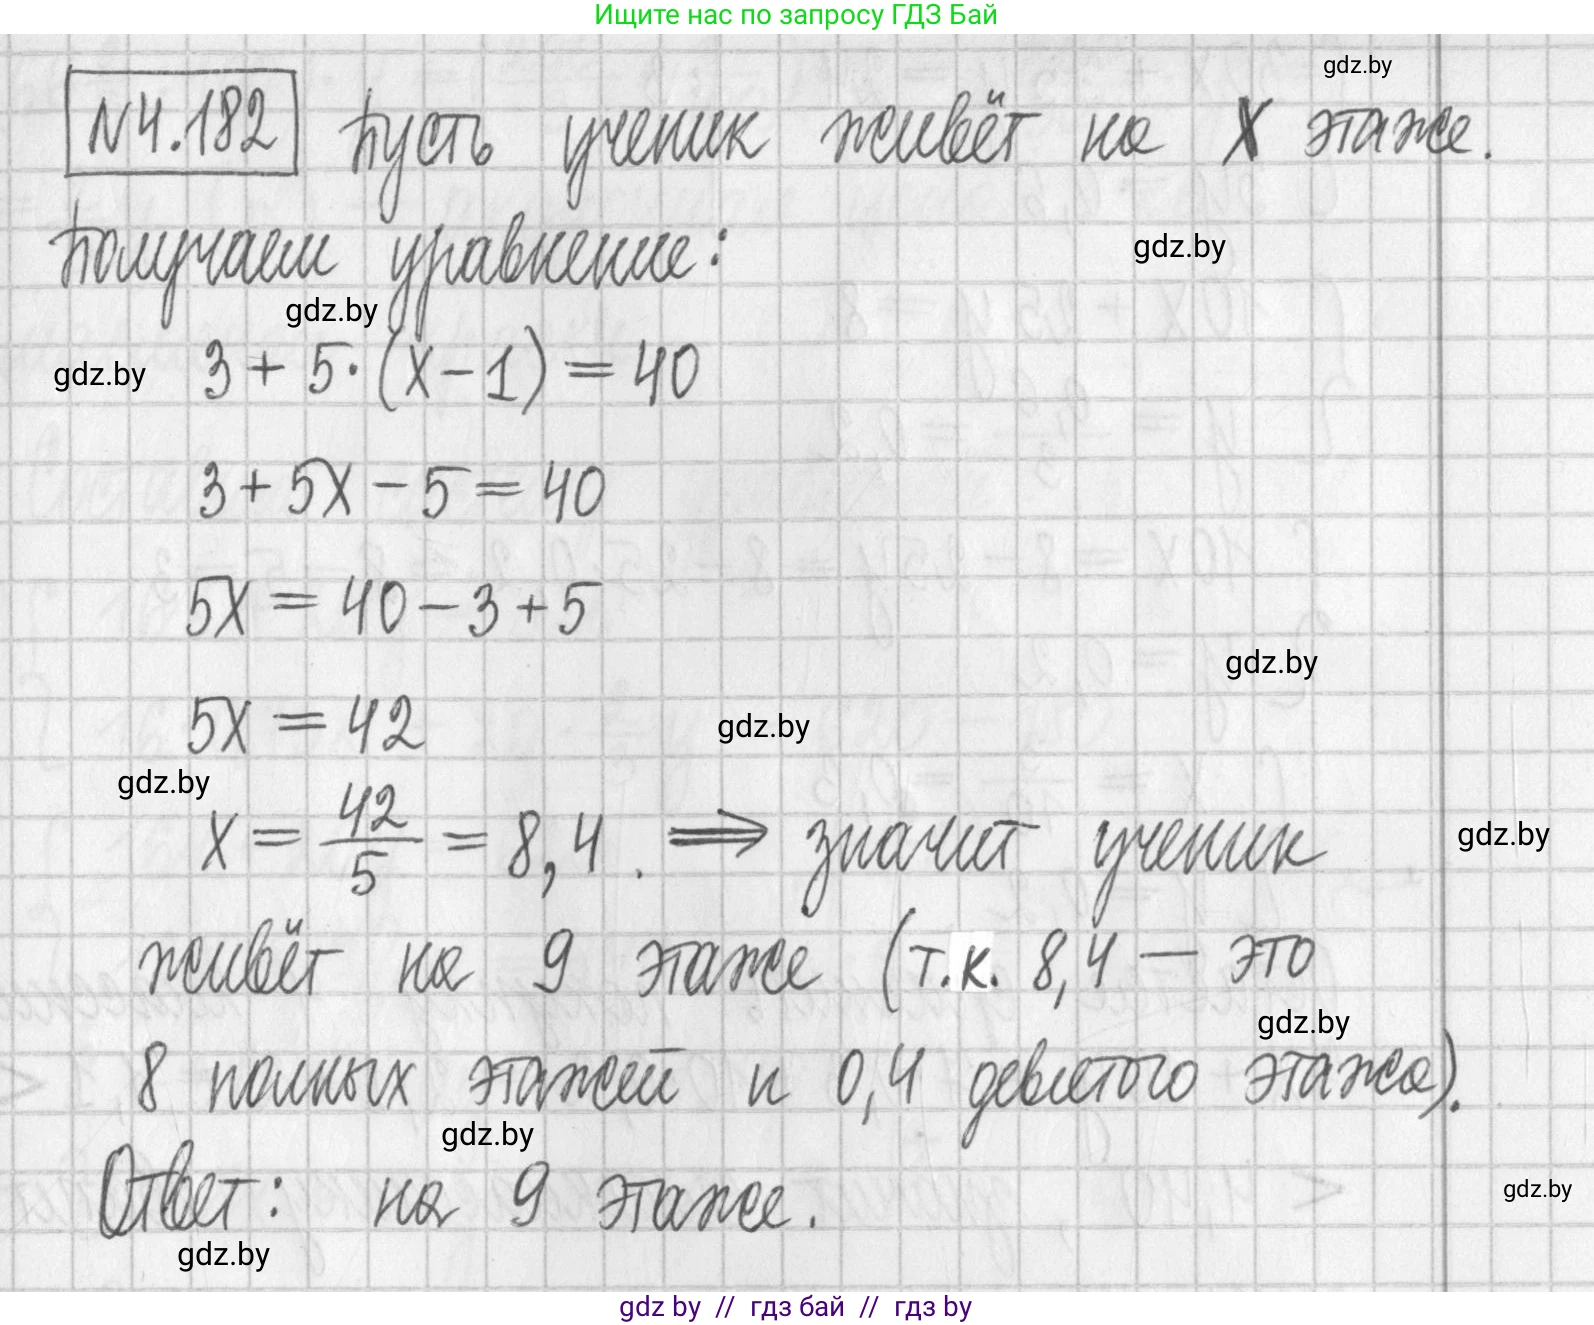 Ищите нас по запросу ГДЗ Бай
gdz.by
N4.182 Пусть ученик живёт на X этаже.
Получаем уравнение:
gdz.by
gdz.by
gdz.by
3 + 5·(x-1) = 40
3 + 5x - 5 = 40
5x = 40 - 3 + 5
gdz.by
5x = 42
gdz.by
gdz.by
x = 42/5 = 8,4. ⟹ значит ученик
gdz.by
живёт на 9 этаже (т.к. 8,4 — это
gdz.by
8 полных этажей и 0,4 девятого этажа).
gdz.by
Ответ: на 9 этаже.
gdz.by
gdz.by
gdz by // гдз бай // гдз by